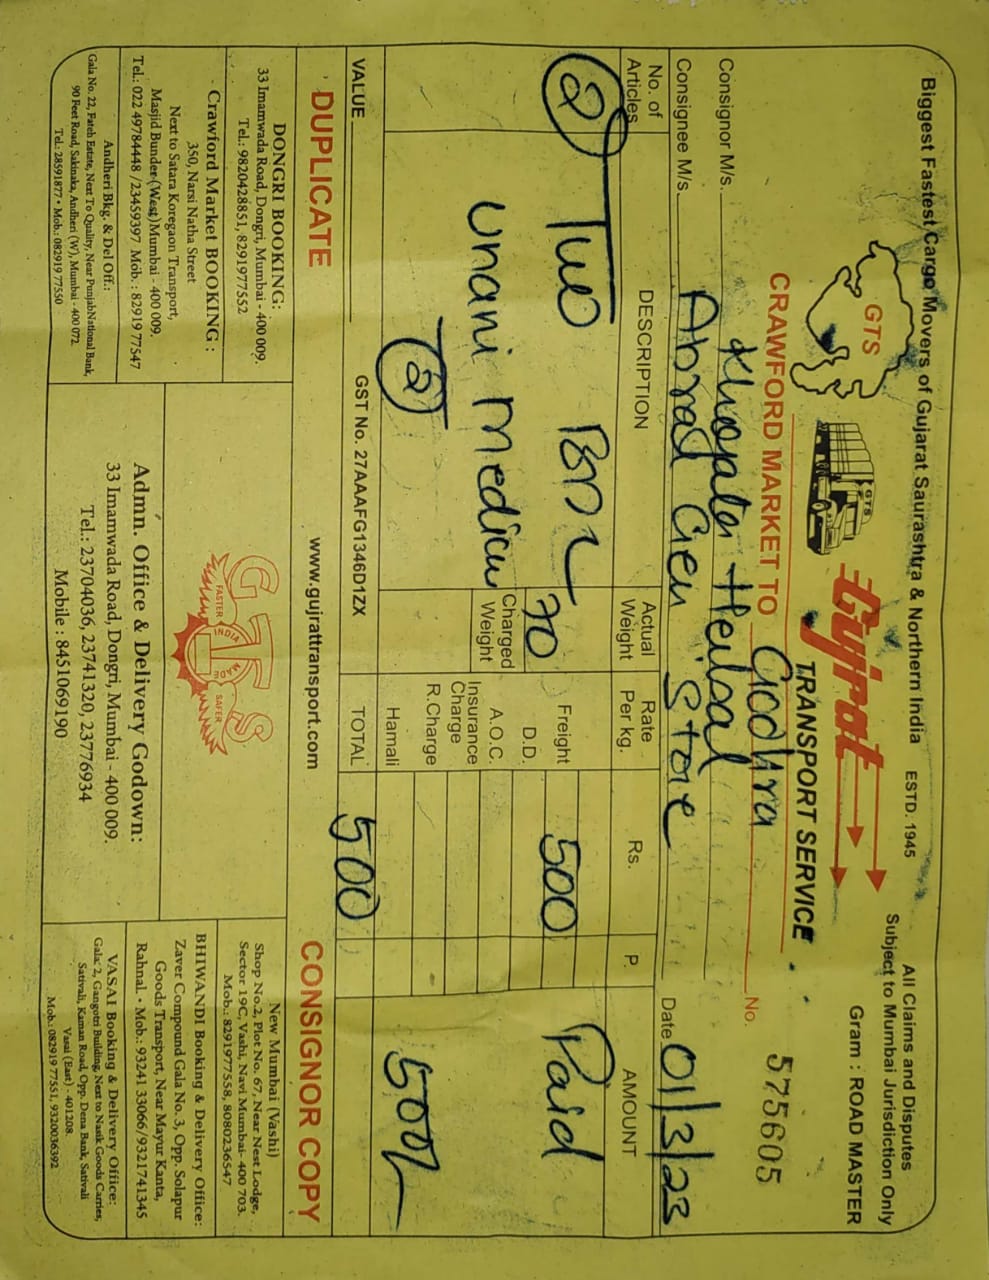 Biggest Fastest Cargo Movers of Gujarat Saurashtra & Northern India
ESTD. 1945
All Claims and Disputes
Subject to Mumbai Jurisdiction Only
Gram : ROAD MASTER
GTS
GTS
Gujrat
TRANSPORT SERVICE
CRAWFORD MARKET TO Godhra
No. 575605
Consignor M/s. Herbal
Consignee M/s. Abrar Gen Store
Date 01/3/23
No. of Articles
DESCRIPTION
Actual Weight
Rate Per kg.
Rs.
P.
AMOUNT
2 Two
70
Freight 500 Paid
D.D.
unani
Charged Weight
A.O.C.
Insurance Charge
R.Charge
2
Hamali
500
VALUE
GST No. 27AAAFG1346D1ZX
TOTAL 500
DUPLICATE
www.gujrattransport.com
CONSIGNOR COPY
DONGRI BOOKING:
33 Imamwada Road, Dongri, Mumbai - 400 009.
Tel.: 9820428851, 8291977552
Crawford Market BOOKING :
350, Narsi Natha Street
Next to Satara Koregaon Transport,
Masjid Bunder (West) Mumbai - 400 009.
Tel.: 022 49784448 /23459397 Mob. : 82919 77547
Andheri Bkg. & Del Off.:
Gala No. 22, Fateh Estate, Next To Quality, Near PunjabNational Bank,
90 Feet Road, Sakinaka, Andheri (W), Mumbai - 400 072.
Tel.: 28591877 • Mob.: 082919 77550
GTS
FASTER
INDIA
SAFER
Admn. Office & Delivery Godown:
33 Imamwada Road, Dongri, Mumbai - 400 009.
Tel.: 23704036, 23741320, 23776934
Mobile : 8451069190
New Mumbai (Vashi)
Shop No.2, Plot No. 67, Near Nest Lodge,
Sector 19C, Vashi, Navi Mumbai- 400 703.
Mob.: 8291977558, 8080236547
BHIWANDI Booking & Delivery Office:
Zaver Compound Gala No. 3, Opp. Solapur
Goods Transport, Near Mayur Kanta,
Rahnal. • Mob.: 93241 33066 /9321741345
VASAI Booking & Delivery Office:
Gala: 2, Gangotri Building, Next to Nasik Goods Carries,
Sativali, Kaman Road, Opp. Dena Bank, Sativali
Vasai (East) - 401208.
Mob.: 082919 77551, 9320036392